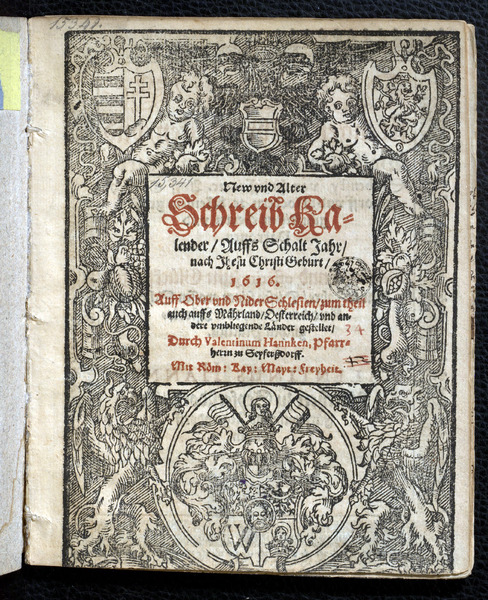 13341.
13,341
New vnd Alter
Schreib Ka-
lender / Auffs Schalt Jahr /
nach Jhesu Christi Geburt /
1616.
Auff Ober vnd Nider Schlesien / zum theil
auch auffs Mährland / Oesterreich / vnd an-
dere vmbliegende Länder gestellet /
Durch Valentinum Hannken, Pfarr-
herrn zu Seyferßdorff.
Mit Röm: Kay: Mayt: Freyheit.
34
W